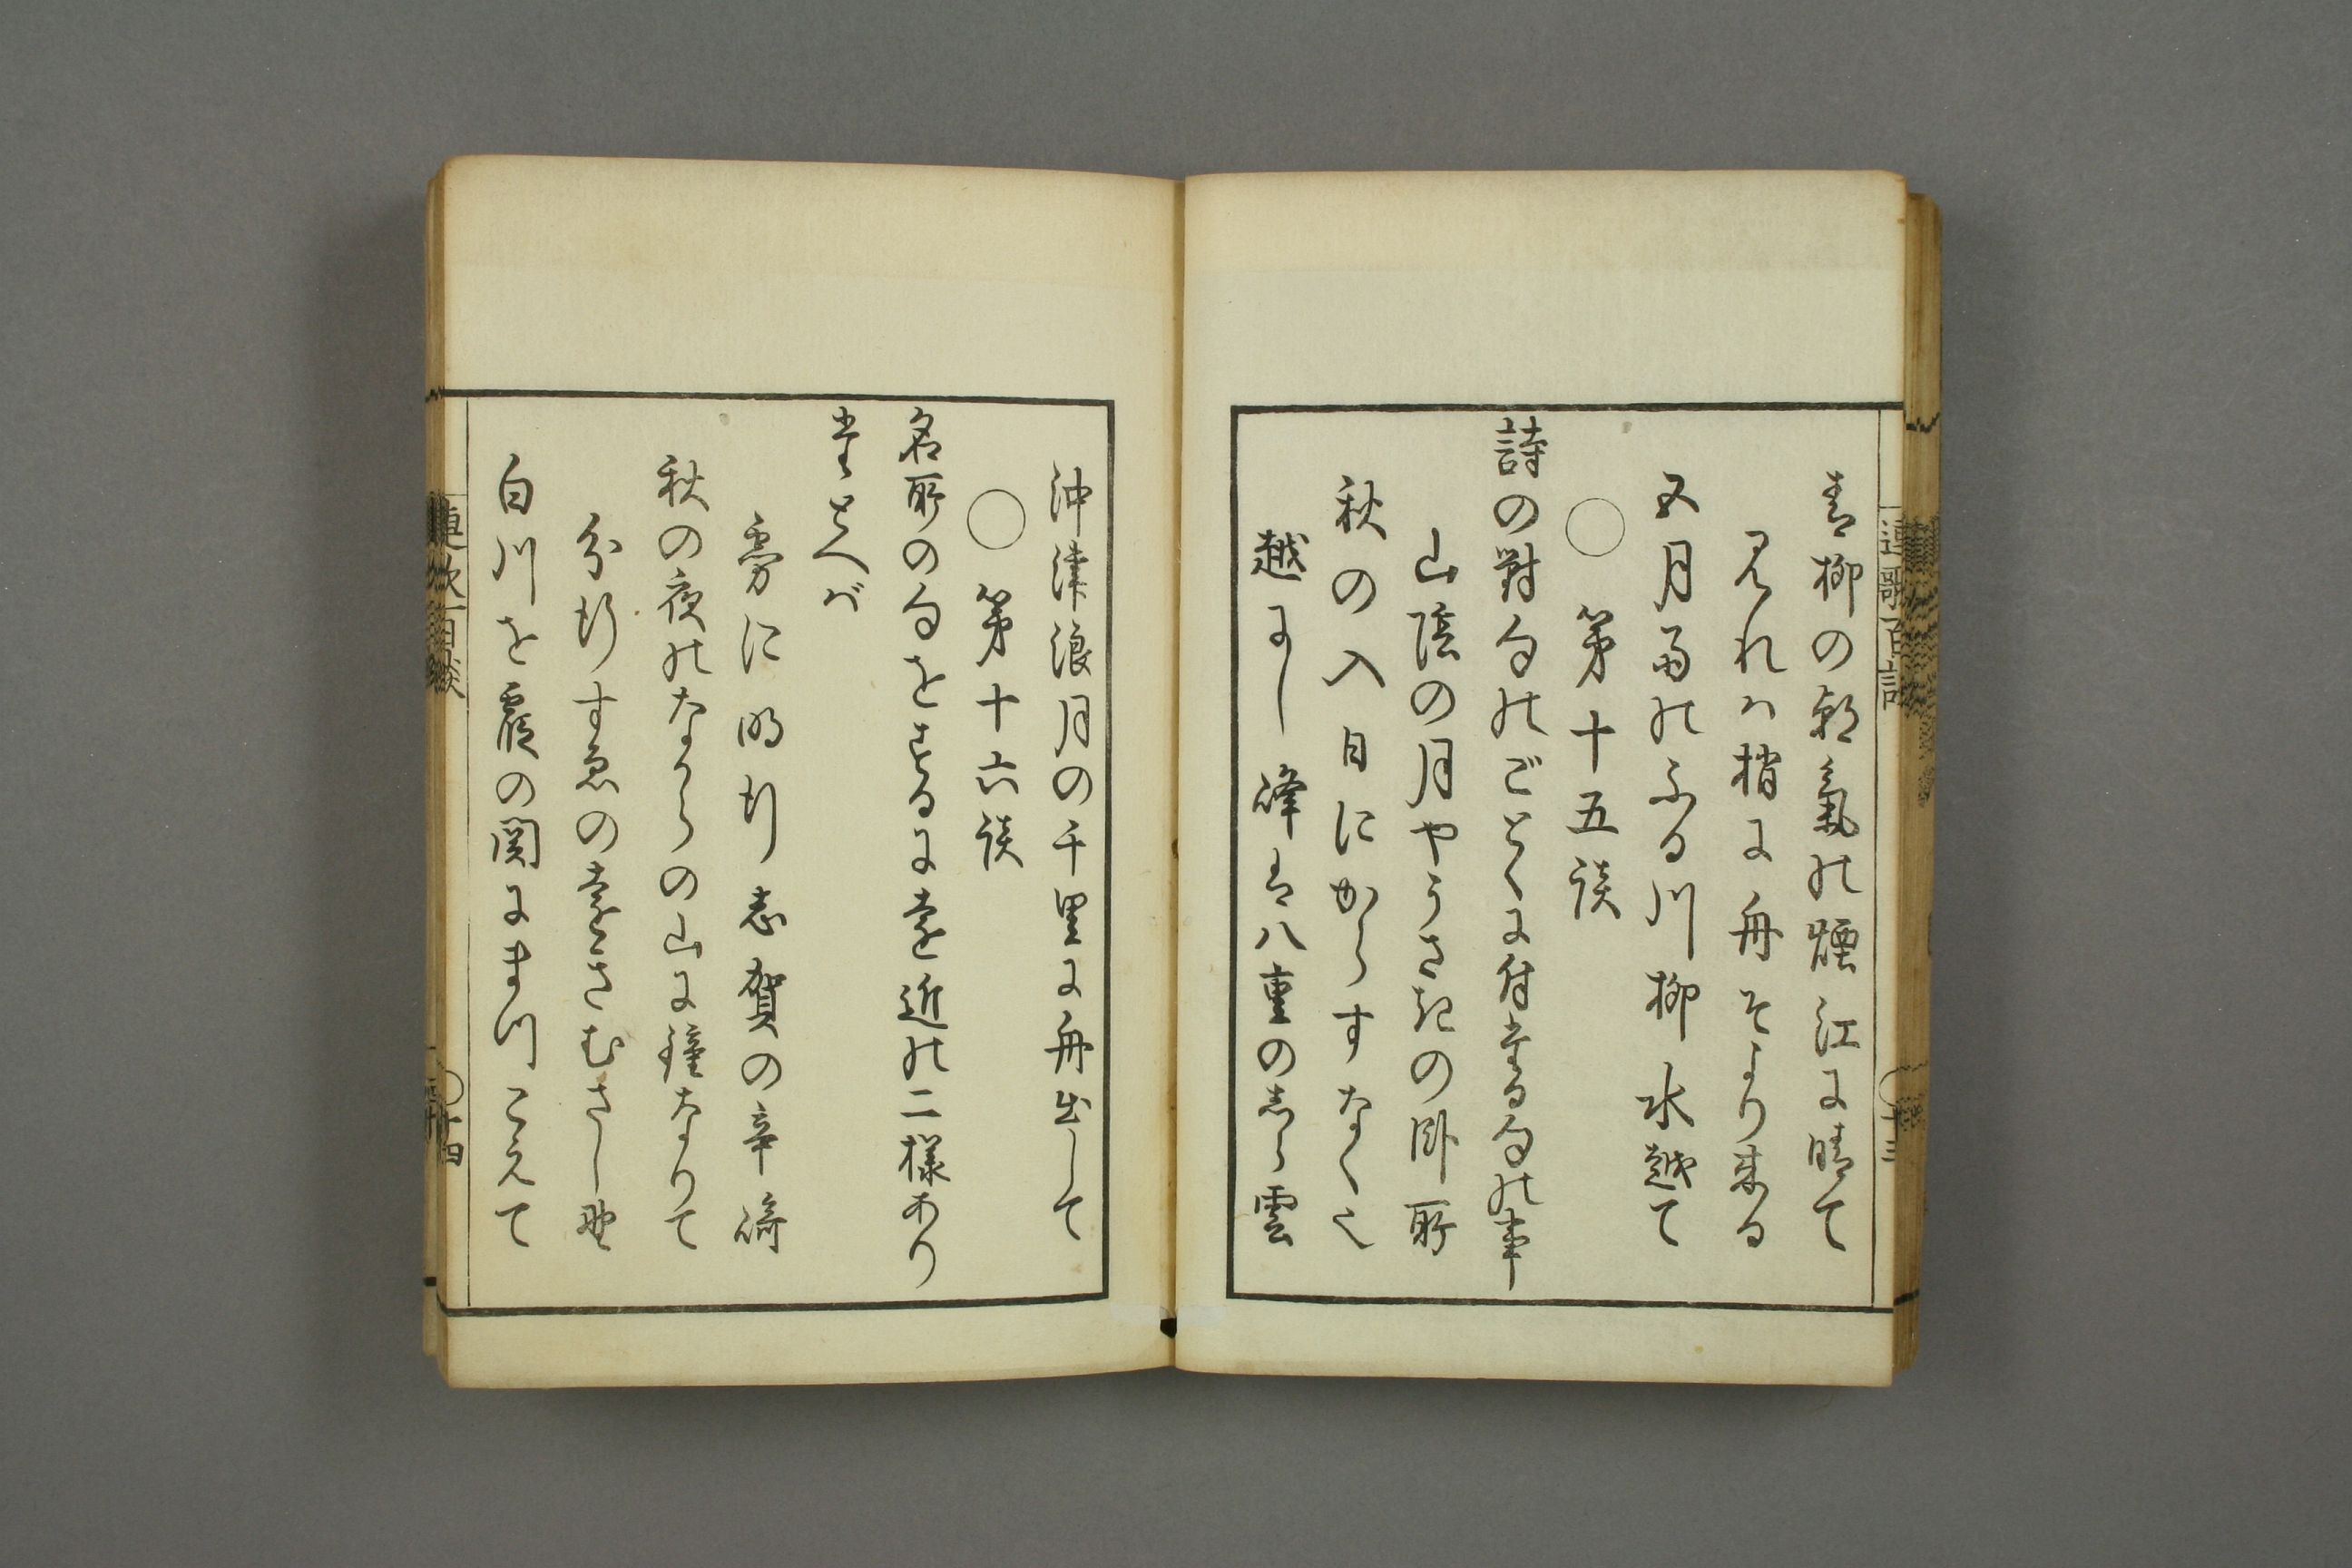 連歌百談
〇十三
青柳の朝氣の煙江に晴て
みれは梢に舟そより来る
五月雨のふる川柳水越て
〇 第十五談
詩の對句のごとくに付たる句の事
山陰の月やうさきの臥所
秋の入日にからすなく也
越にし峰は八重のしら雲
沖津浪月の千里に舟出して
〇 第十六談
名所の句をするに遠近の二様あり
たとへば
雺に明行志賀の辛崎
秋の夜のなからの山に鐘なりて
分行すゑの遠きむさし野
白川を霞の関にまつこえて
連歌百談
〇十四